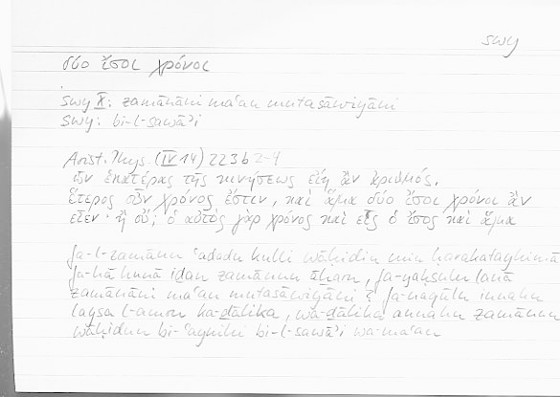 swy
δύο ἴσοι χρόνοι
swy X: zamānāni maʿan mutasāwiyāni
swy: bi-l-sawāʾi
Arist. Phys. (IV 14) 223b 2-4
ὧν ἑκατέρας τῆς κινήσεως εἴη ἂν ἀριθμός.
ἕτερος οὖν χρόνος ἔστιν, καὶ ἅμα δύο ἴσοι χρόνοι ἂν
εἶεν· ἢ οὔ; ὁ αὐτὸς γὰρ χρόνος καὶ εἷς ὁ ἴσος καὶ ἅμα
fa-l-zamānu ʿadadu kulli wāḥidin min ḥarakatayhimā
fa-hā hunā iḏan zamānun āḫaru, fa-yaḥṣulu lanā
zamānāni maʿan mutasāwiyāni? fa-naqūlu innahu
laysa l-amru ka-ḏālika, wa-ḏālika annahu zamānun
wāḥidun bi-ʿaynihi bi-l-sawāʾi wa-maʿan